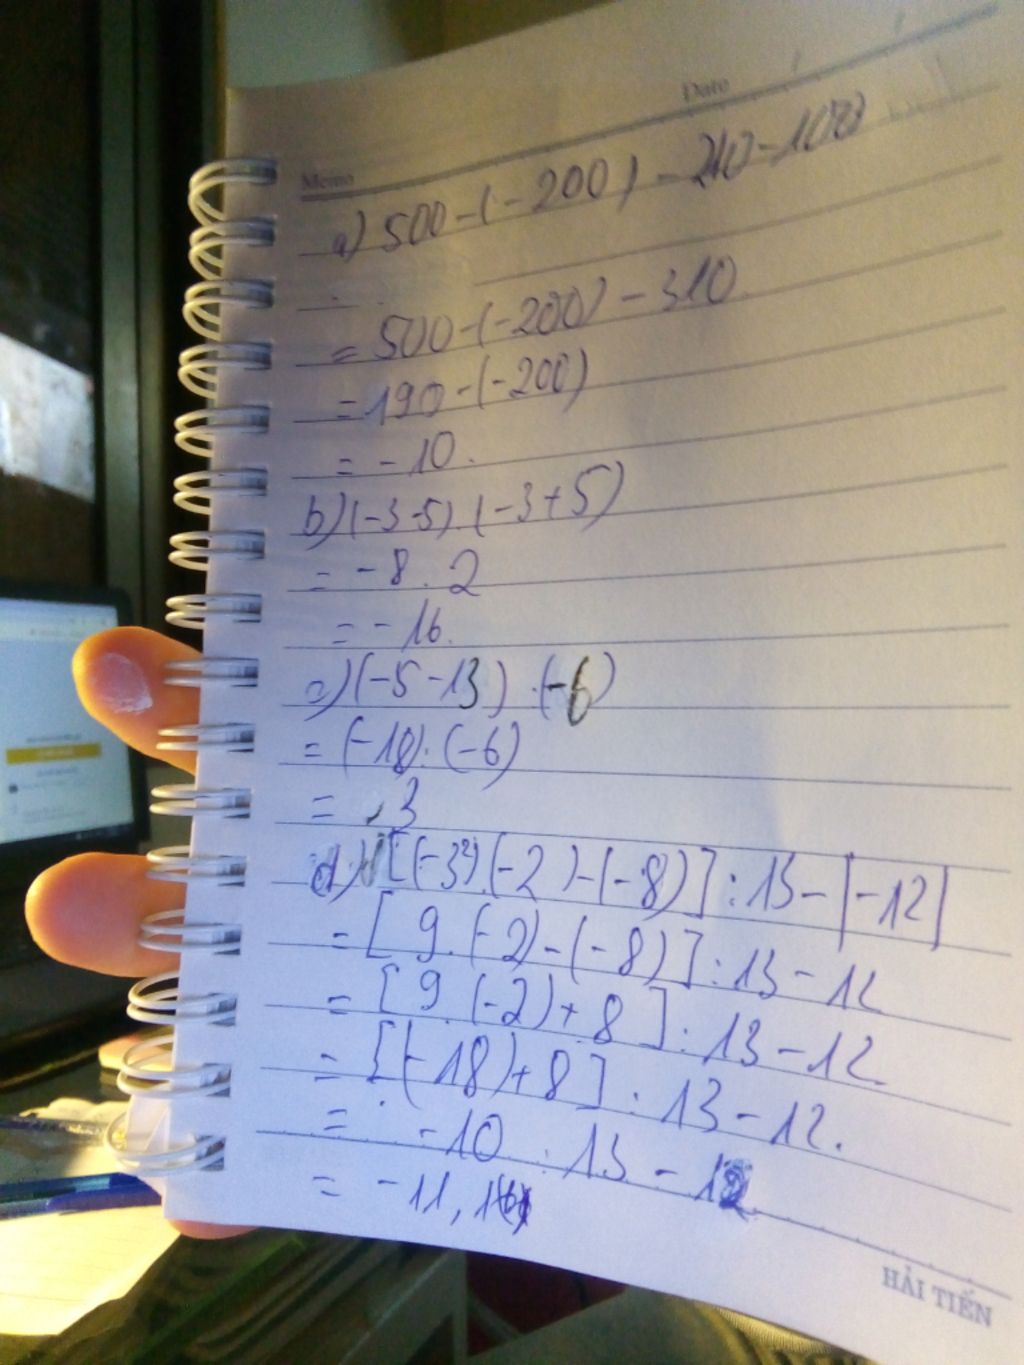 Memo
Date
a) 500 - (-200) - 210 - 100
= 500 - (-200) - 310
= 190 - (-200)
= -10.
b) (-3-5).(-3+5)
= -8 . 2
= -16.
c) (-5-13) : (-6)
= (-18) : (-6)
= 3
d) [(-3²).(-2)-(-8)] : 13 - |-12|
= [9.(-2)-(-8)] : 13 - 12
= [9.(-2)+8] : 13 - 12.
= [(-18)+8] : 13 - 12.
= -10 : 13 - 12
= -11,
HẢI TIẾN